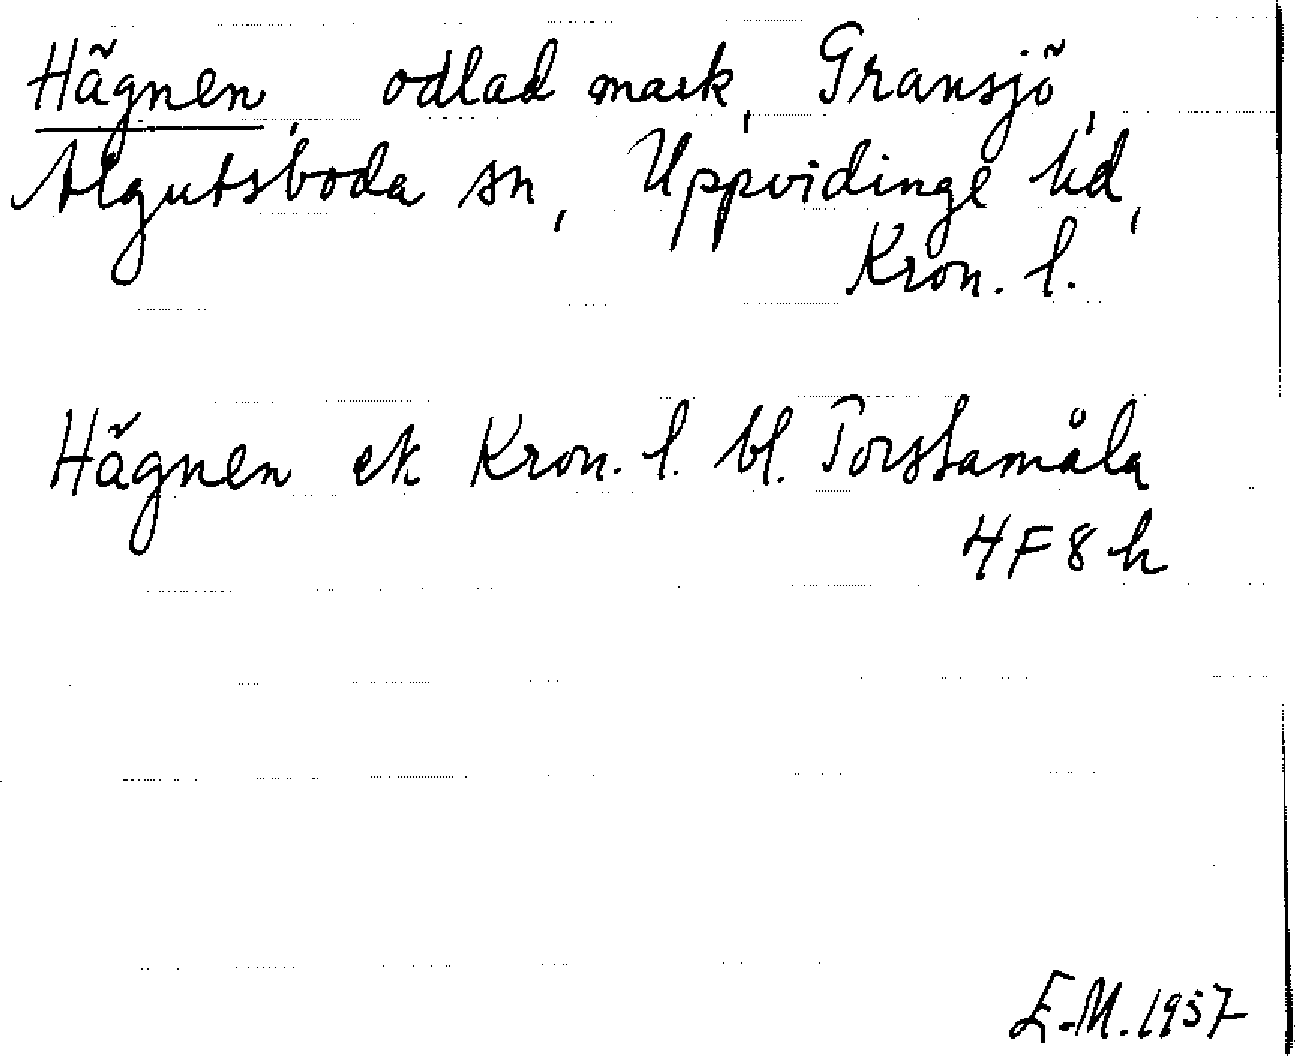 Hägnen, odlad mark, Gransjö,
Algutsboda sn, Uppvidinge hd,
Kron. l.
Hägnen ek Kron. l. bl. Torstamåla
4F8h
E.M. 1957